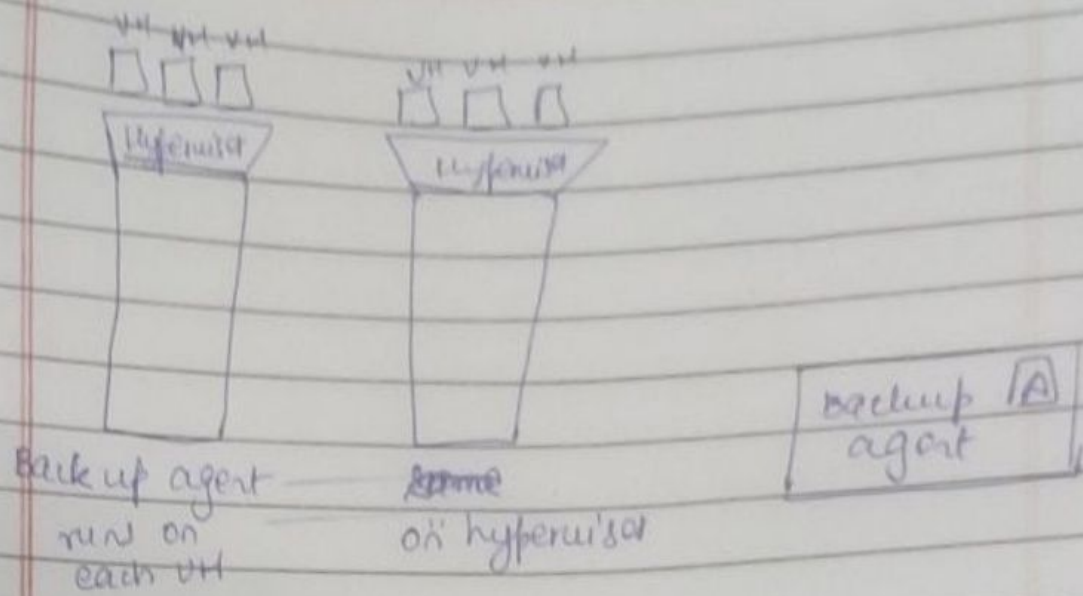 VM VM VM
VM VM VM
Hypervisor
Hypervisor
Backup A
agent
Backup agent
run on
each VM
on hypervisor